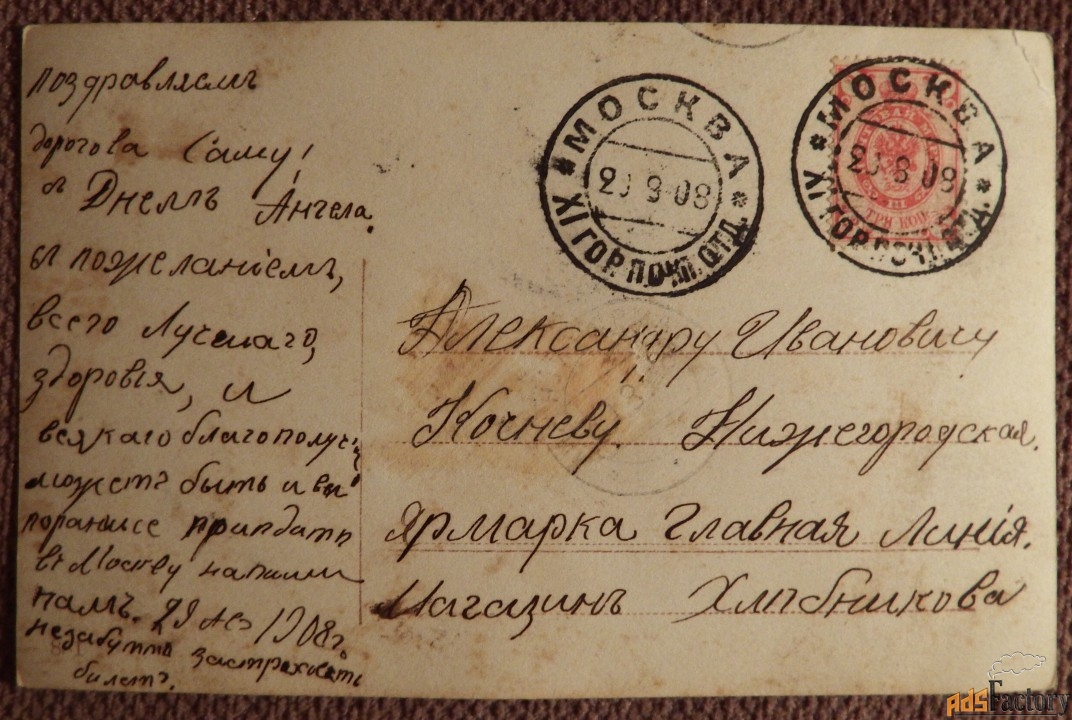 поздравляемъ
дорогова Сашу!
съ Днемъ Ангела.
съ пожеланіемъ,
всего Лучшаго,
здоровія, и
всякаго благополучія
можетъ быть и вы
пораньше
въ Москву напиши
намъ. 1908 г.
застраховать
билетъ.
МОСКВА
8 08
XI ГОР. ПОЧТ. ОТД.
МОСКВА
8 08
XI ГОР. ПОЧТ. ОТД.
ТРИ КОП
Александру Ивановичу
Кочневу. Нижегородская.
Ярмарка Главная Линія.
Магазинъ Хлѣбникова
AdsFactory